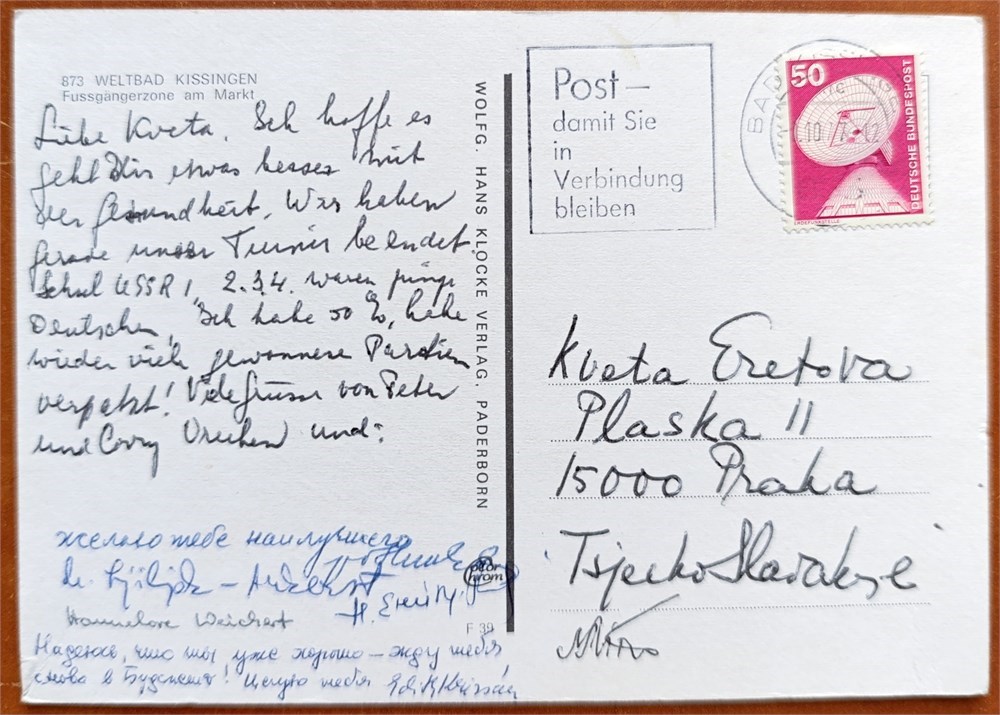 873 WELTBAD KISSINGEN
Fussgängerzone am Markt
Liebe Kveta. Ich hoffe es
geht Dir etwas besser mit
der Gesundheit. Wir haben
gerade unser Turnier beendet.
USSR 1, 2.3.4. waren
Deutschen, Ich habe 50 %, habe
wieder viele gewonnene Partien
verpatzt! Viele Grüsse von Peter
und Corry Vreeken und:
желаю тебе наилучшего
Hannelore Weichert
Надеюсь, что ты уже хорошо – жду тебя
снова в Будапешт! Целую тебя
WOLFG. HANS KLOCKE VERLAG, PADERBORN
F 39
Post –
damit Sie
in
Verbindung
bleiben
BAD KISSINGEN
50
DEUTSCHE BUNDESPOST
ERDEFUNKSTELLE
Kveta Eretova
Plaska 11
15000 Praha